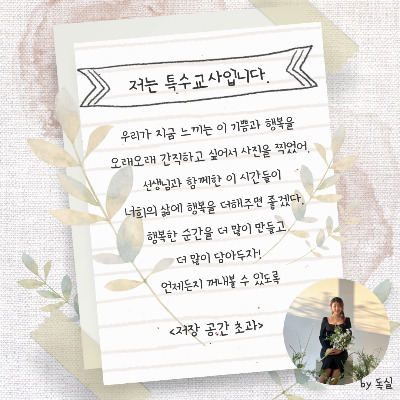 저는 특수교사입니다.
우리가 지금 느끼는 이 기쁨과 행복을
오래오래 간직하고 싶어서 사진을 찍었어.
선생님과 함께한 이 시간들이
너희의 삶에 행복을 더해주면 좋겠다.
행복한 순간을 더 많이 만들고
더 많이 담아두자!
언제든지 꺼내볼 수 있도록
<저장 공간 초과>
by 독실